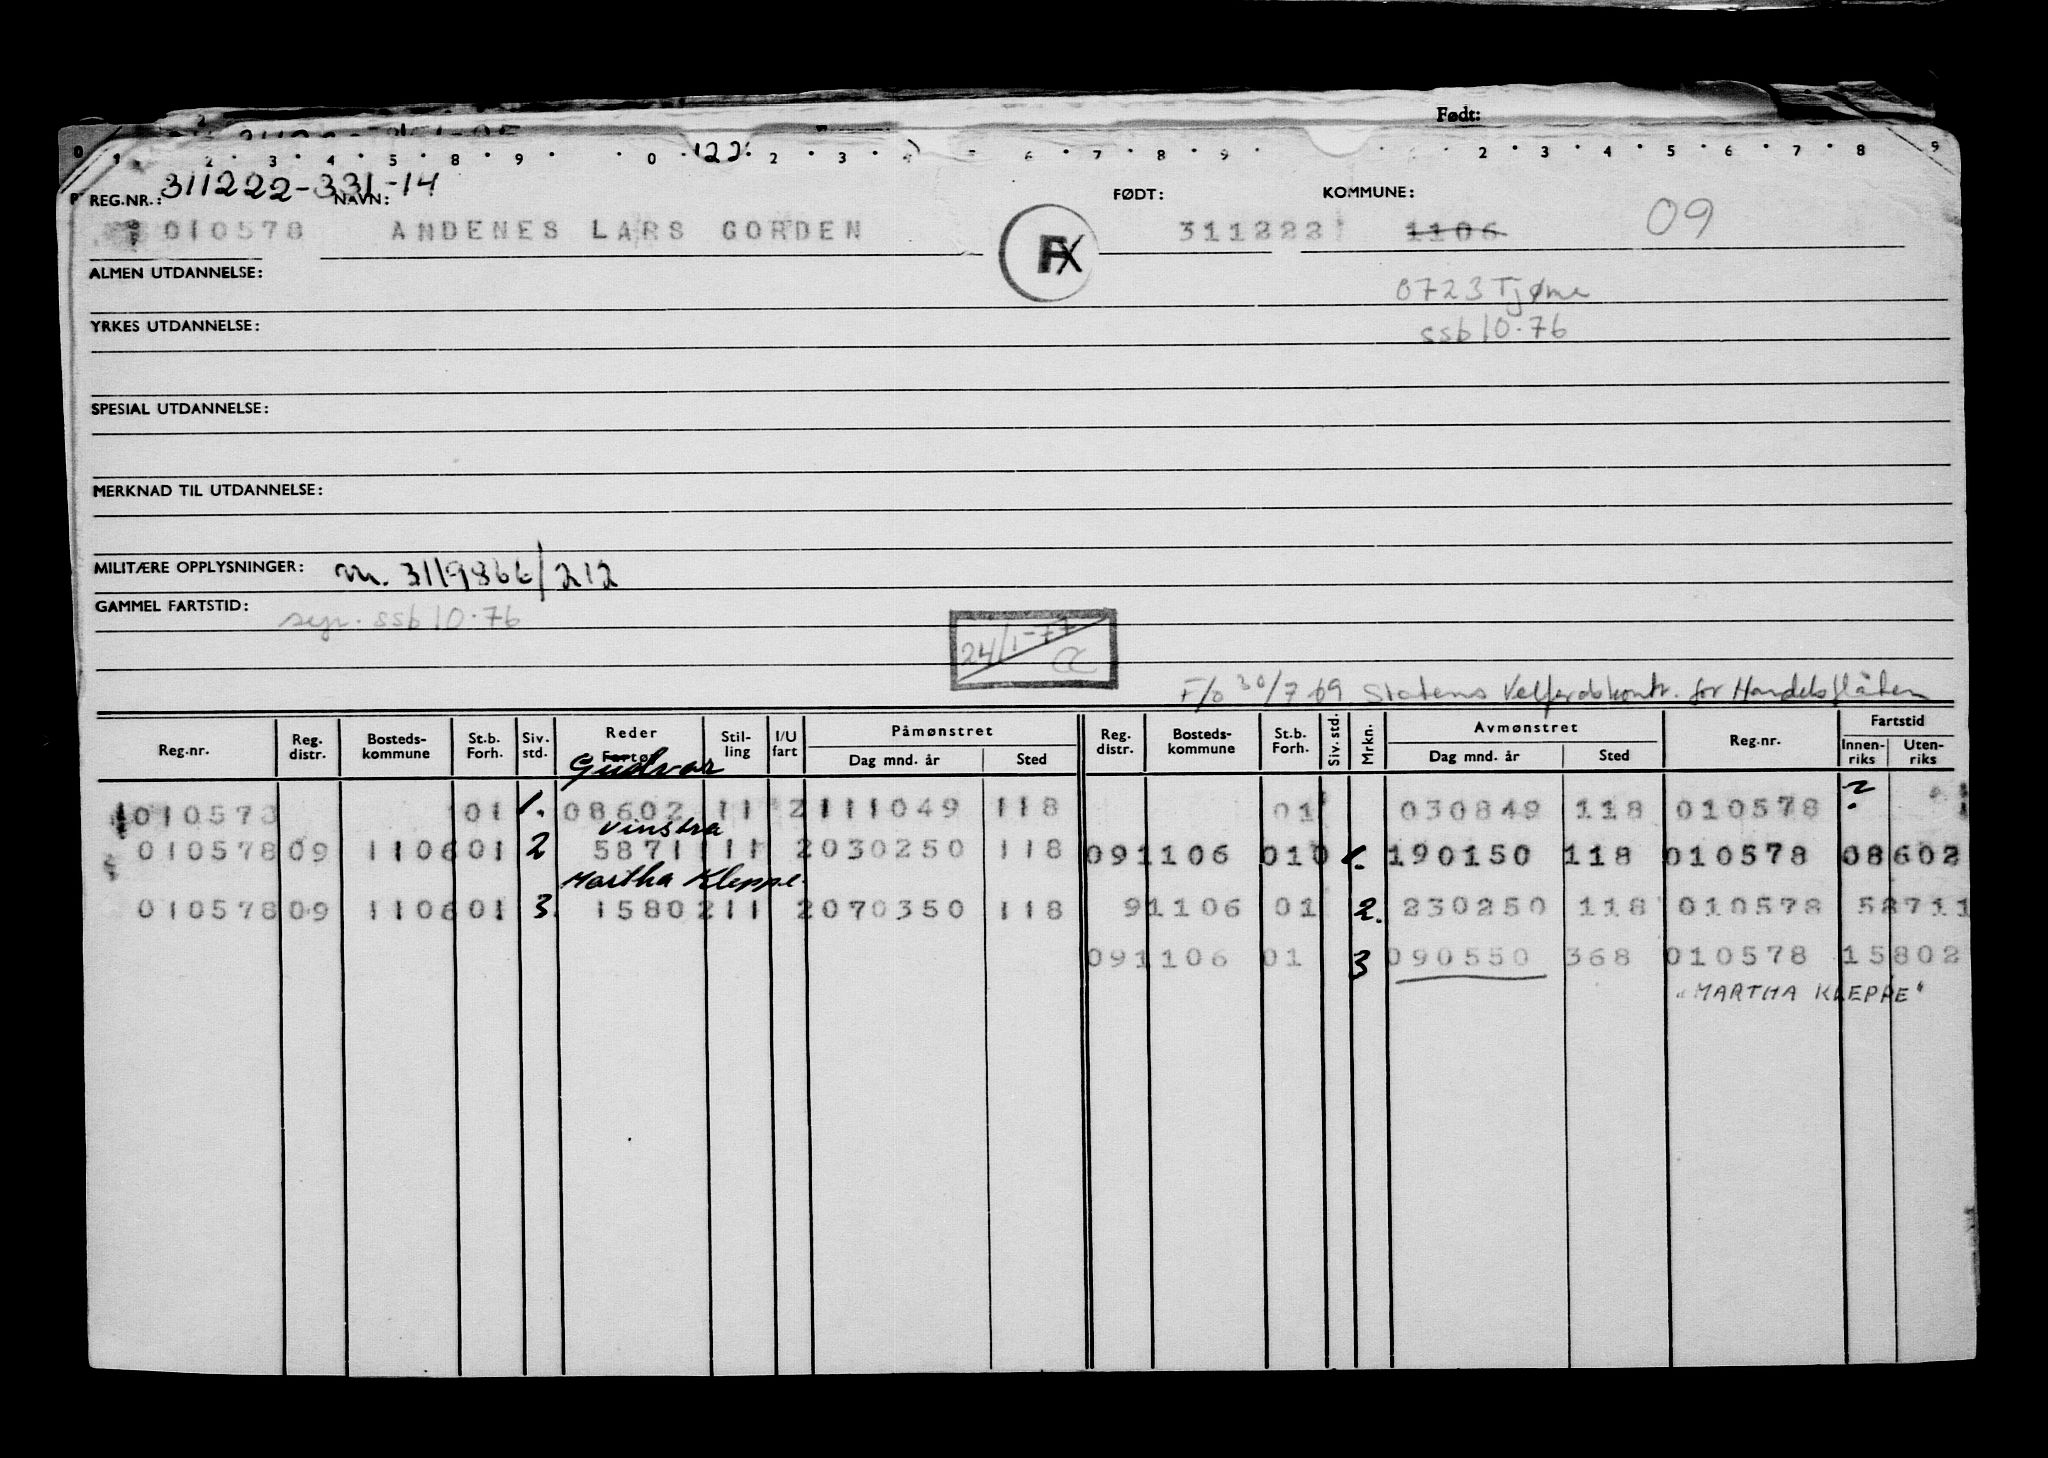 Født:
0 1 2 3 4 5 8 9 0 122 2 3 4 6 7 8 9 2 3 4 5 6 7 8 9
REG.NR.: 311222-331-14 NAVN: FØDT: KOMMUNE:
010578 ANDENES LARS GORDEN FX 311222 1106 09
ALMEN UTDANNELSE:
0723 Tjøme
YRKES UTDANNELSE: ssb 10.76
SPESIAL UTDANNELSE:
MERKNAD TIL UTDANNELSE:
MILITÆRE OPPLYSNINGER: m. 3119866/212
GAMMEL FARTSTID: ssb 10.76
24/1-77
F/o 30/7 69 Statens Velferdskontr. for Handelsflåten
Reg.nr. Reg. distr. Bosteds-kommune St.b. Forh. Siv. std. Reder Fartøy Stil-ling I/U fart Påmønstret Dag mnd. år Sted Reg. distr. Bosteds-kommune St.b. Forh. Siv. std. Mrkn. Avmønstret Dag mnd. år Sted Reg.nr. Fartstid Innen-riks Uten-riks
Gudvor
010578 01 1. 08602 11 2 111049 118 01 030849 118 010578 ?
Vinstra
010578 09 1106 01 2 5871 1 11 2 030250 118 09 1106 010 1. 190150 118 010578 08602
Martha Kleppe
010578 09 1106 01 3. 15802 11 2 070350 118 9 1106 01 2. 230250 118 010578 58711
09 1106 01 3 090550 368 010578 15802
"MARTHA KLEPPE"